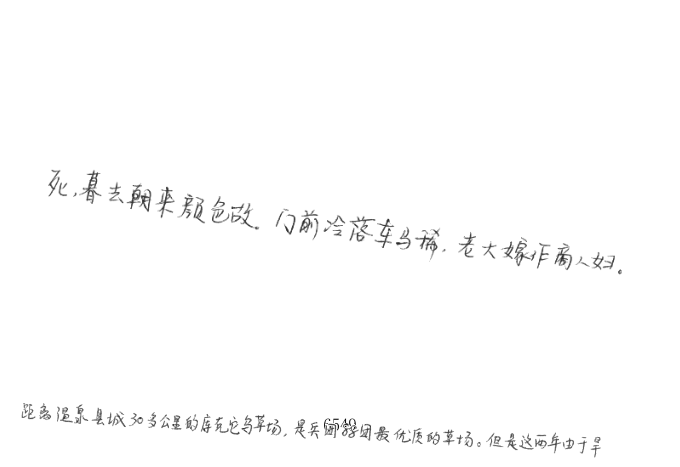 死,暮去朝来颜色故。门前冷落车马稀,老大嫁作商人妇。
距离温泉县城30多公里的库克它乌草场,是兵团88团最优质的草场。但是这两年由于旱
6549